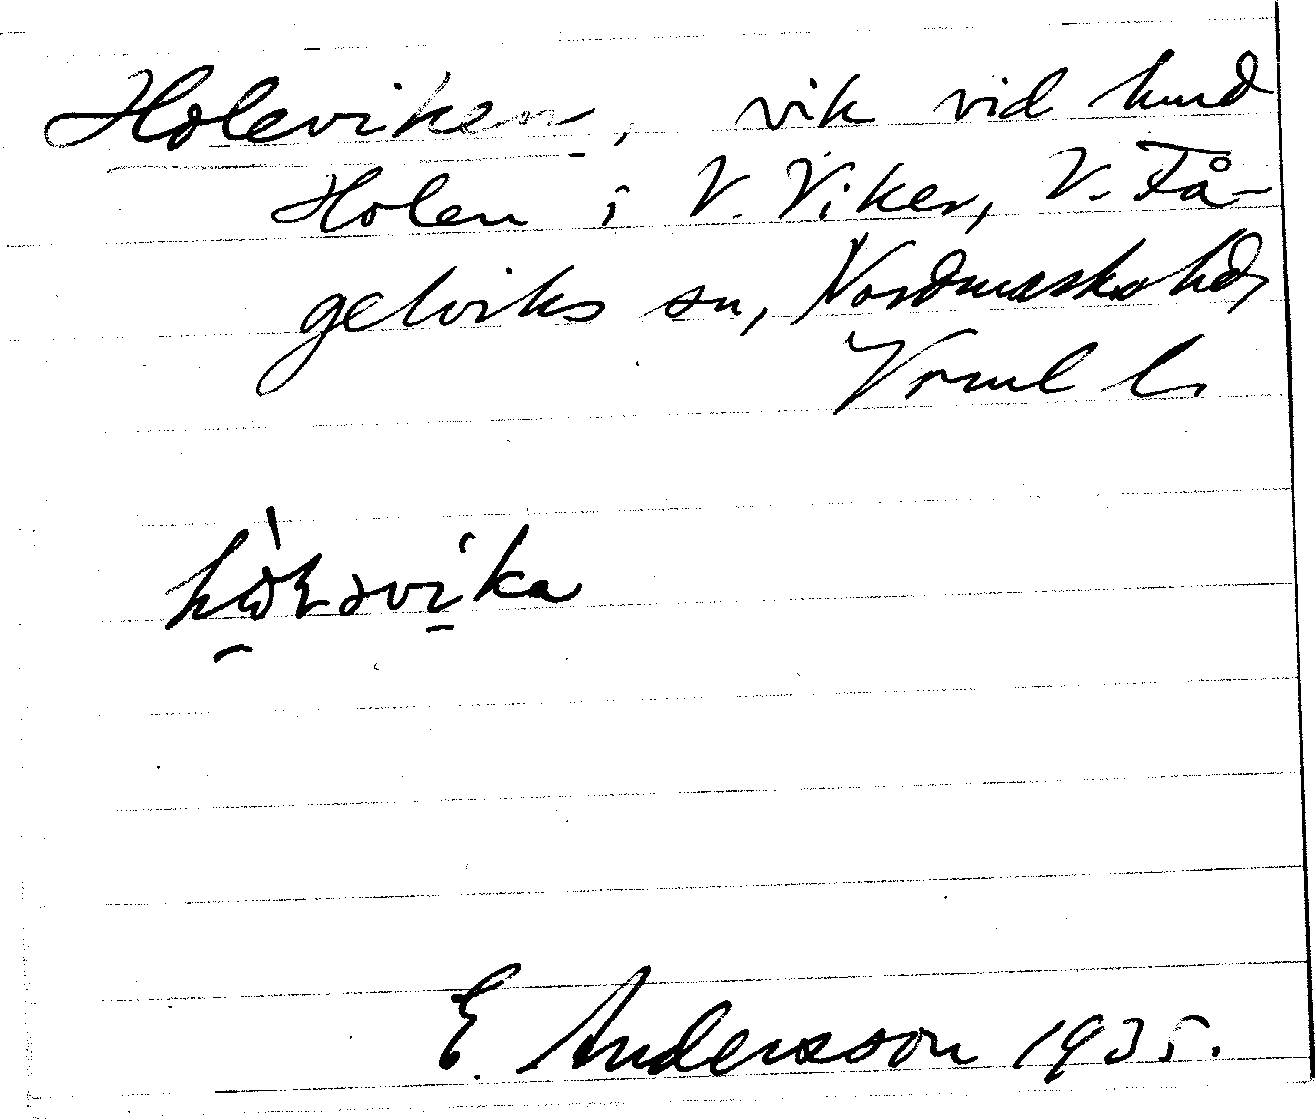 Holeviken, vik vid hmd
Holen i V. Viker, V. Få-
gelviks sn, Nordmarks hd,
Vrml l.
E. Andersson 1935.